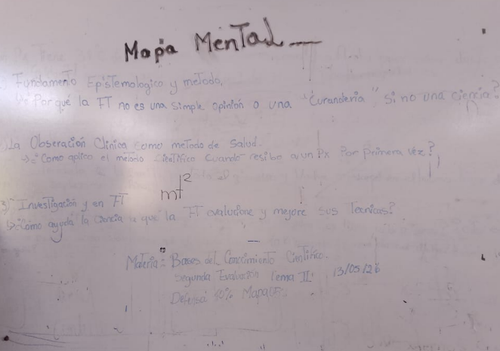 Mapa Mental
Fundamento Epistemologico y metodo.
Por qué la FT no es una simple opinión o una "Curanderia" Si no una ciencia?
La Observación Clinica como metodo de Salud.
→ ¿Como aplico el metodo Cientifico Cuando recibo a un Px Por primera vez?
mt²
3) Investigación y en FT
¿Cómo ayuda la ciencia a que la FT evolucione y mejore sus Tecnicas?
Materia: Bases del Conocimiento Cientifico.
Segunda Evaluación Tema II.
Defensa 50% Mapa